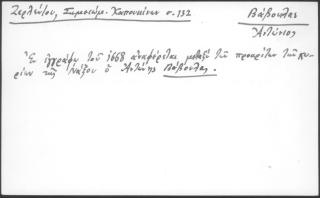 Ζερλέντου, Σημείωμ. Καπουκίνων σ. 132
Βάβουλας
Ἀντώνιος
Ἐν ἐγγράφῳ τοῦ 1668 ἀναφέρεται μεταξὺ τῶν προκρίτων τῆς κυ-
ρίων τῆς Νάξου ὁ Ἀντώνης Βάβουλας.